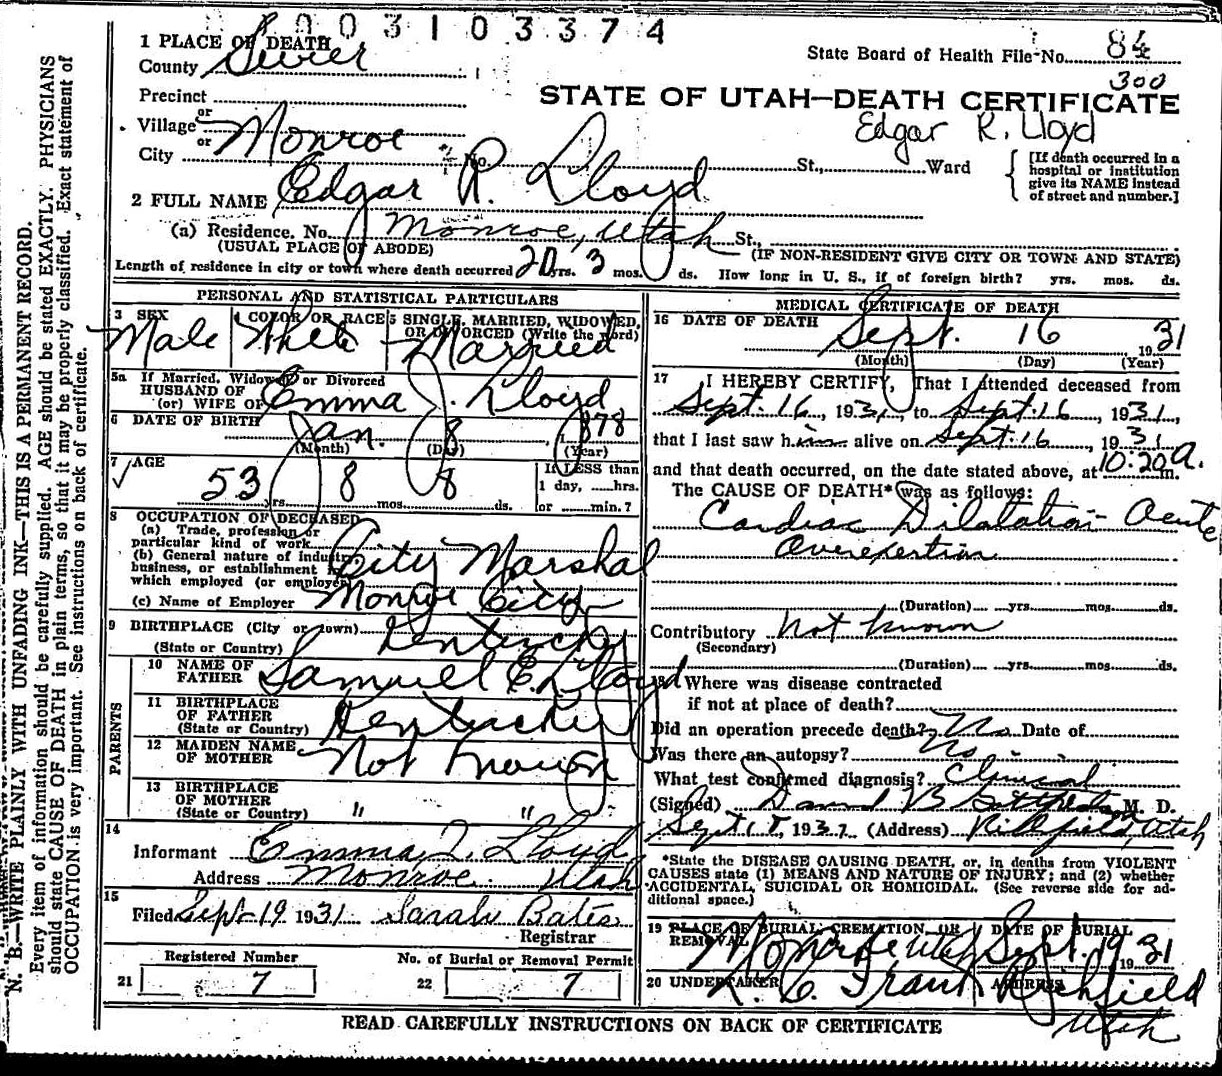 003103374
1 PLACE OF DEATH
County Sevier
State Board of Health File No. 84
300
Precinct
STATE OF UTAH—DEATH CERTIFICATE
or
Village
or
City Monroe No. St., Ward
Edgar R. Lloyd
[If death occurred in a hospital or institution give its NAME instead of street and number.]
2 FULL NAME Edgar R. Lloyd
(a) Residence. No. Monroe, Utah St.,
(USUAL PLACE OF ABODE) (IF NON-RESIDENT GIVE CITY OR TOWN AND STATE)
Length of residence in city or town where death occurred 20 yrs. 3 mos. ds. How long in U. S., if of foreign birth? yrs. mos. ds.
PERSONAL AND STATISTICAL PARTICULARS
3 SEX Male
4 COLOR OR RACE White
5 SINGLE, MARRIED, WIDOWED, OR DIVORCED (Write the word) Married
5a If Married, Widowed or Divorced
HUSBAND OF
(or) WIFE OF Emma J. Lloyd
6 DATE OF BIRTH Jan. 8, 1878
(Month) (Day) (Year)
7 AGE
53 yrs. 8 mos. 8 ds.
If LESS than
1 day, hrs.
or min.?
8 OCCUPATION OF DECEASED
(a) Trade, profession or
particular kind of work City Marshal
(b) General nature of industry,
business, or establishment in
which employed (or employer)
(c) Name of Employer Monroe City
9 BIRTHPLACE (City or town) Kentucky
(State or Country)
PARENTS
10 NAME OF FATHER Samuel E. Lloyd
11 BIRTHPLACE OF FATHER (State or Country) Kentucky
12 MAIDEN NAME OF MOTHER Not known
13 BIRTHPLACE OF MOTHER (State or Country) " "
14
Informant Emma J. Lloyd
Address Monroe Utah
15
Filed Sept 19 1931 Sarah Bates
Registrar
Registered Number
21 7
No. of Burial or Removal Permit
22 7
MEDICAL CERTIFICATE OF DEATH
16 DATE OF DEATH Sept. 16 1931
(Month) (Day) (Year)
17 I HEREBY CERTIFY, That I attended deceased from
Sept. 16, 1931, to Sept. 16, 1931,
that I last saw him alive on Sept. 16, 1931
and that death occurred, on the date stated above, at 10:20 a. m.
The CAUSE OF DEATH* was as follows:
Cardiac Dilatation Acute
Overexertion
(Duration) yrs. mos. ds.
Contributory Not known
(Secondary)
(Duration) yrs. mos. ds.
18 Where was disease contracted
if not at place of death?
Did an operation precede death? No Date of
Was there an autopsy? No
What test confirmed diagnosis? Clinical
(Signed) M. D.
Sept 1 193 (Address) Richfield, Utah
*State the DISEASE CAUSING DEATH, or, in deaths from VIOLENT
CAUSES state (1) MEANS AND NATURE OF INJURY; and (2) whether
ACCIDENTAL, SUICIDAL OR HOMICIDAL. (See reverse side for ad-
ditional space.)
19 PLACE OF BURIAL, CREMATION, OR REMOVAL Monroe Utah
DATE OF BURIAL Sept. 19 1931
20 UNDERTAKER L. C. Grant
ADDRESS Richfield
Utah
READ CAREFULLY INSTRUCTIONS ON BACK OF CERTIFICATE
N. B.—WRITE PLAINLY WITH UNFADING INK—THIS IS A PERMANENT RECORD.
Every item of information should be carefully supplied. AGE should be stated EXACTLY. PHYSICIANS
should state CAUSE OF DEATH in plain terms, so that it may be properly classified. Exact statement of
OCCUPATION is very important. See instructions on back of certificate.